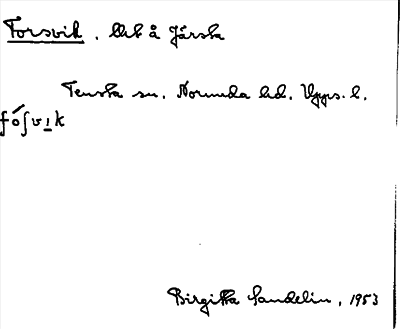 Forsvik, llht å Järsta
Tensta sn. Norunda hd. Upps. l.
fóʃvık
Birgitta Sandelin, 1953